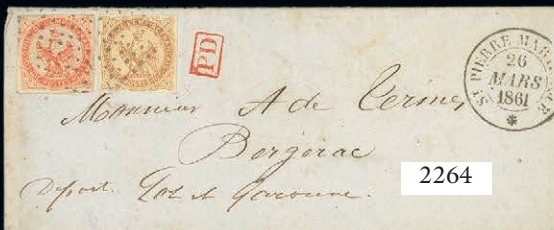 PD
ST PIERRE MAR
26
MARS
1861
Monsieur A de
Bergerac
Depart. Lot et Garonne.
2264